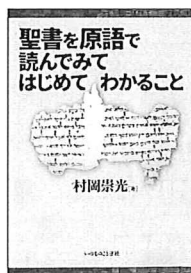 聖書を原語で
読んでみて
はじめてわかること
村岡崇光 著
いのちのことば社